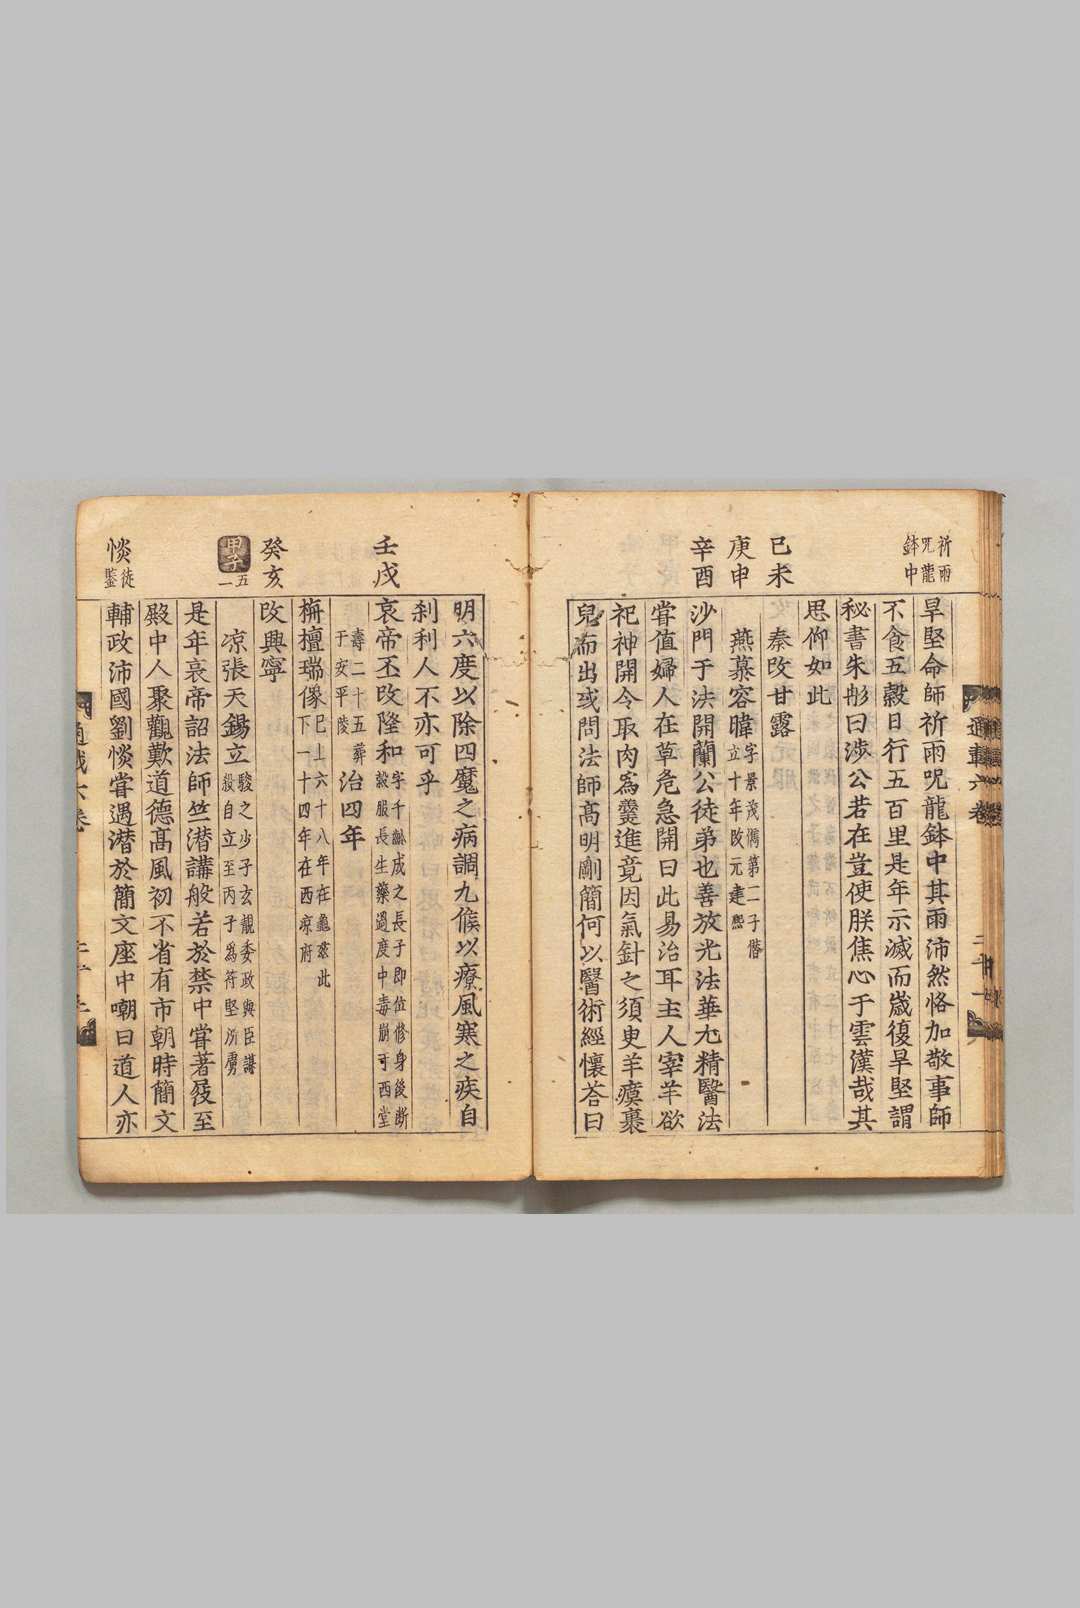 祈雨
咒龍
鉢中
旱堅命師祈雨呪龍鉢中其雨沛然恪加敬事師
不食五穀日行五百里是年示滅而嵗復旱堅謂
秘書朱彤曰渉公若在豈使朕焦心于雲漢哉其
思仰如此
己未
秦改甘露
庚申
燕慕容暐字景茂儁第二子僭
立十年改元建熙
辛酉
沙門于法開蘭公徒弟也善放光法華尤精醫法
甞值婦人在草危急開曰此易治耳主人宰羊欲
祀神開令取肉為羹進竟因氣針之須臾羊癀裹
兒而出或問法師髙明剛簡何以醫術經懷荅曰
明六度以除四魔之病調九候以療風寒之疾自
利利人不亦可乎
壬戌
哀帝丕改隆和字千齡成之長子即位修身後断
穀服長生藥過度中毒崩于西堂
壽二十五葬
于安平陵
治四年
栴檀瑞像已上六十八年在龜兹此
下一十四年在西凉府
癸亥
改興寧
甲子
五
一
凉張天錫立駿之少子玄靚委政與臣謀
殺自立至丙子為符堅所虜
是年哀帝詔法師竺潜講般若於禁中甞著屐至
殿中人聚觀歎道德髙風初不省有市朝時簡文
惔徒
鑒
輔政沛國劉惔甞遇潜於簡文座中嘲曰道人亦
通載六卷